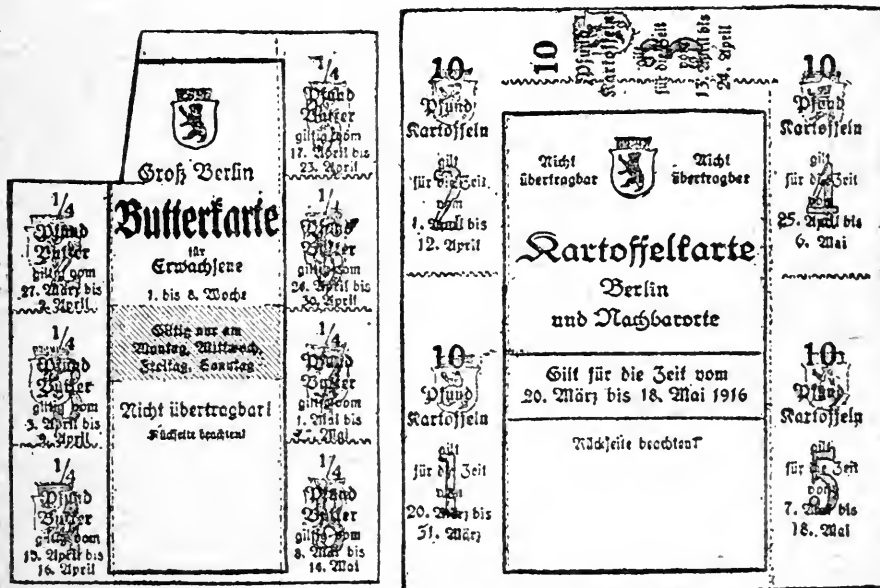 Groß Berlin
Butterkarte
für
Erwachsene
1. bis 8. Woche
Giltig nur am
Montag, Mittwoch,
Freitag, Sonntag
Nicht übertragbar!
Rückseite beachten!
1/4
Pfund
Butter
giltig vom
27. März bis
2. April
1/4
Pfund
Butter
giltig vom
3. April bis
9. April
1/4
Pfund
Butter
giltig vom
bis
16. April
1/4
Pfund
Butter
giltig vom
17. April bis
23. April
1/4
Pfund
Butter
giltig vom
24. April bis
30. April
1/4
Pfund
Butter
giltig vom
1. Mai bis
7. Mai
1/4
Pfund
Butter
giltig vom
8. Mai bis
14. Mai
10
Pfund
Kartoffeln
gilt
für die Zeit
vom
1. April bis
12. April
2
10
Pfund
Kartoffeln
gilt
für die Zeit
vom
20. März bis
31. März
1
10
Pfund
Kartoffeln
gilt
für die Zeit
vom
13. April bis
24. April
3
Nicht
übertragbar
Nicht
übertragbar
Kartoffelkarte
Berlin
und Nachbarorte
Gilt für die Zeit vom
20. März bis 18. Mai 1916
Rückseite beachten!
10
Pfund
Kartoffeln
gilt
für die Zeit
vom
25. April bis
6. Mai
4
10
Pfund
Kartoffeln
gilt
für die Zeit
vom
7. Mai bis
18. Mai
5